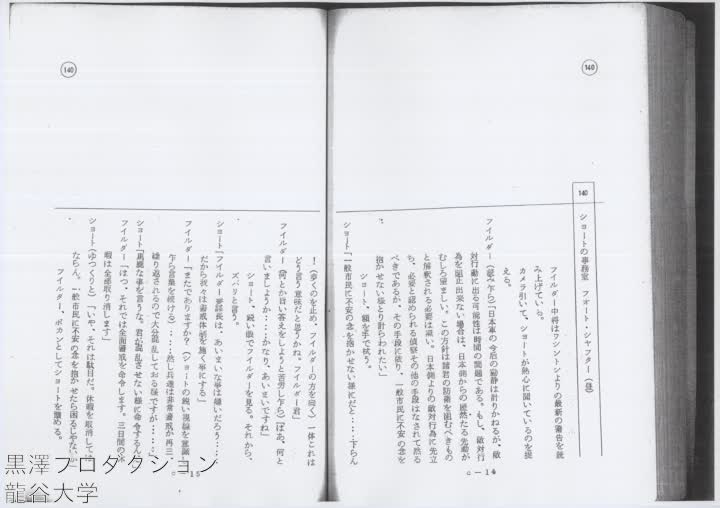 140
140
ショートの事務室 フォート・シャフター(昼)
フイルダー中将はワシントンよりの最新の警告を読
み上げている。
カメラ引いて、ショートが熱心に聞いているのを捉
える。
フイルダー「(読み下ら)「日本軍の今后の動静は計りかねるが、敵
対行動に出る可能性は時間の問題である。もし、敵対行
為を阻止出来ない場合は、日本側からの歴然たる先動が
むしろ望ましい。この方針は諸君の防衛を阻むべきもの
と解釈される必要は無い。日本側よりの敵対行為に先立
ち、必要と認められる偵察その他の手段はなされて然る
べきであるが、その手段に依り、一般市民に不安の念を
抱かせない様とり計らわれたい」
ショート、額を手で拭う。
ショート「一般市民に不安の念を抱かせない様にだと・・・・下らん
c-14
140
!(歩くのを止め、フイルダーの方を向く)一体これは
どう言う意味だと思うかね。フイルダー君」
フイルダー(何とか旨い答えをしようと苦労し乍ら)「はあ、何と
言いましようか・・・・かなり、あいまいですね」
ショート、鋭い眼でフイルダーを見る。それから、
ズバリと言う。
ショート「フイルダー参謀長は、あいまいな事は嫌いだろう・・・・
だから我々は警戒体制を施く事にする」
フイルダー「またでありますか?(ショートの鋭い視線を意識し
乍ら言葉を続ける)・・・・然し兵達は非常警戒が再三
繰り返されるので大分混乱しておる様ですが・・・・」
ショート「馬鹿な事を言うな。君が混乱させない様に命令するんだ」
フイルダー「はつ、それでは全面警戒を命令します。三日間の休
暇は全部取り消します」
ショート(ゆつくりと)「いや、それは駄目だ。休暇を取消しては
ならん。一般市民に不安の念を抱かせたら困るじゃないか」
フイルダー、ポカンとしてショートを眺める。
c-15
黒澤プロダクション
龍谷大学